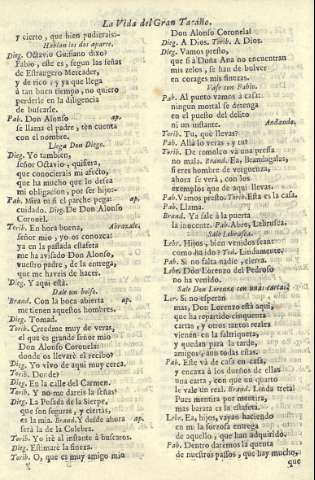 La Vida del Gran Tacaño.
y cierto, que bien pudierais:-
Hablan los dos aparte.
Dieg. Octavio Gaisiano dixo?
Fabio, este es, segun las señas
de Estrangero Mercader,
y de rico; y ya que llega
à tan buen tiempo, no quiero
perderle en la diligencia
de buscarle.
Pab. Don Alonso ap.
se llama el padre, ten cuenta
con el nombre.
Llega Don Diego.
Dieg. Yo tambien,
señor Octavio, quisiera,
que conocierais mi afecto,
que ha mucho que lo desea
mi obligacion, por ser hijo:-
Pab. Mira no si el parche pega:
cuidado. Dieg. De Don Alonso
Coronèl.
Torib. En hora buena, Abrazale.
señor mio, yo os conozca:
ya en la passada estafeta
me ha avisado Don Alonso,
vuestro padre, de la entrega,
que me havris de hacer.
Dieg. Y aqui està.
Dale un bolso.
Brand. Con la boca abierta ap.
me tienen aquestos hombres.
Dieg. Tomad.
Torib. Creedme muy de veras,
el que es grande señor mio
Don Alonso Coronèl:
donde os llevarè el recibo?
Dieg. Yo vivo de aqui muy cerca.
Torib. Donde?
Dieg. En la calle del Carmen.
Torib. Y no me dareis las señas?
Dieg. La Posada de la Sierpe,
que son seguras, y ciertas,
es la mia. Brand. Y desde ahora ap.
serà la de la Culebra.
Torib. Yo irè al instante à buscaros.
Dieg. Estimarè la fineza.
Torib. O, que es muy amigo mio
Don Alonso Coronèl!
Dieg. A Dios. Torib. A Dios.
Dieg. Vamos presto,
que si à Doña Ana no encuentran
mis zelos, se han de bolver
en corages mis finezas.
Vase con Fabio.
Pab. Al punto vamos à casa:
ningun mortal se detenga
en el puelo del delito
ni un instante. Andando.
Torib. Tu, què llevas?
Pab. Allà lo veràs, y tu?
Torib. De romolco và una pressa
no mala. Brand. Ea, Brandagalas,
si eres hombre de verguenza,
ahora se verà, con los
exemplos que de aqui llevas.
Pab. Vamos presto. Torib. Esta es la casa.
Pab. Llama.
Brand. Ya sale à la puerta
la inocente. Pab. Abre, Lebrusca.
Sale Lebrusca.
Lebr. Hijos, bien venidos seais:
como ha ido? Tod. Lindamente.
Pab. Si no falta nadie, cierra.
Lebr. Don Lorenzo del Pedroso
no ha venido.
Sale Don Lorenzo con unas cartas.
Lor. Si no esperan
mas, Don Lorenzo està aqui,
que ha repartido cinquenta
cartas, y otros tantos reales
vienen en la faltriquera,
y quedan para la tarde,
amigos, aun todas estas.
Pab. Este và de casa en casa,
y encaxa à los dueños de ellas
una carta, con que un quarto
le vale un real. Brand. Linda treta!
Pues mentira por mentira,
mas barata es la estafeta.
Lebr. Ea, hijos, vayan haciendo
en mi la forzosa entrega
de aquello, que han adquirido.
Pab. Dentro daremos la quenta
de nuestros passos, que hay mucho,
que